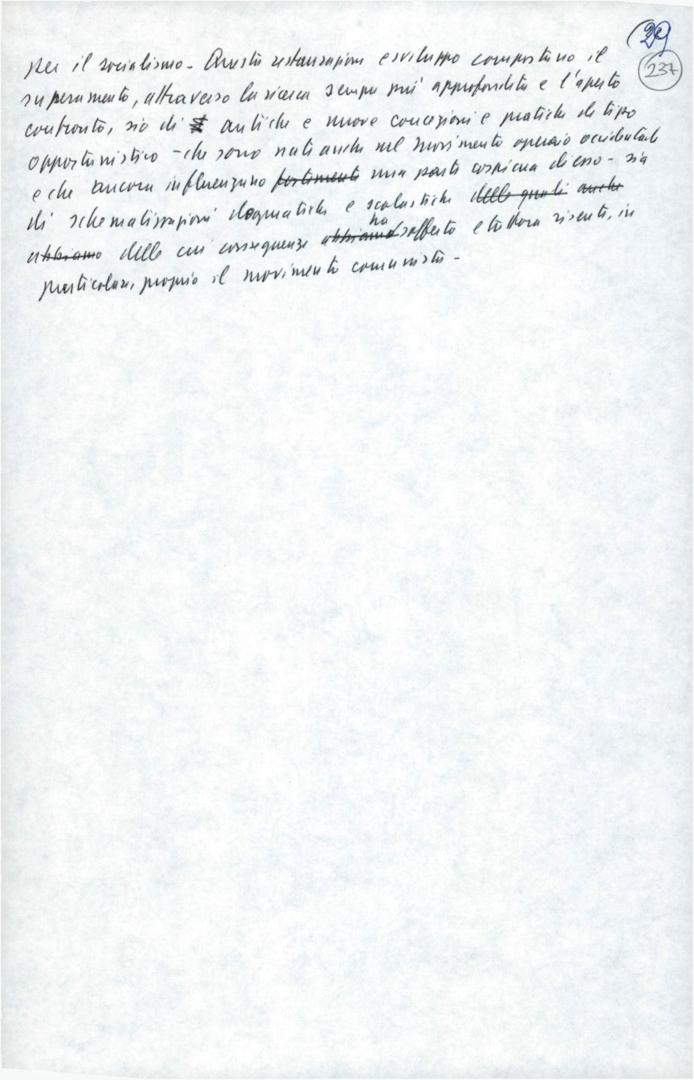 29
237
per il socialismo - Questa restaurazione e sviluppo comportano il
superamento, attraverso la ricerca sempre più approfondita e l'aperto
confronto, sia di antiche e nuove concezioni e pratiche di tipo
opportunistico - che sono nati anche nel movimento operaio occidentale
e che ancora influenzano fortemente una parte cospicua di esso - sia
di schematizzazioni dogmatiche e scolastiche delle quali anche
abbiamo delle cui conseguenze abbiamo ha sofferto e tuttora risente, in
particolare, proprio il movimento comunista -